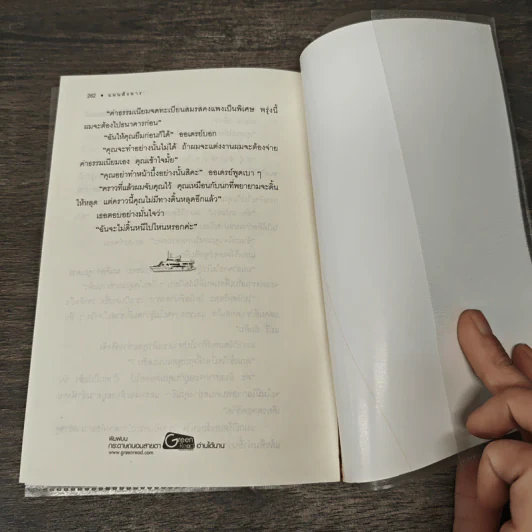 262 • แผนสังหาร
"ค่าธรรมเนียมจดทะเบียนสมรสคงแพงเป็นพิเศษ พรุ่งนี้
ผมจะต้องไปธนาคารก่อน"
"ฉันให้คุณยืมก่อนก็ได้" ออเดรย์บอก
"คุณจะทำอย่างนั้นไม่ได้ ถ้าผมจะแต่งงานผมจะต้องจ่าย
ค่าธรรมเนียมเอง คุณเข้าใจมั้ย"
"คุณอย่าทำหน้าบึ้งอย่างนั้นสิคะ" ออเดรย์พูดเบา ๆ
"คราวที่แล้วผมจับคุณไว้ คุณเหมือนกับนกที่พยายามจะดิ้น
ให้หลุด แต่คราวนี้คุณไม่มีทางดิ้นหลุดอีกแล้ว"
เธอตอบอย่างมั่นใจว่า
"ฉันจะไม่ดิ้นหนีไปไหนหรอกค่ะ"
พิมพ์บน
กระดาษถนอมสายตา Green Read อ่านได้นาน
www.greenread.com